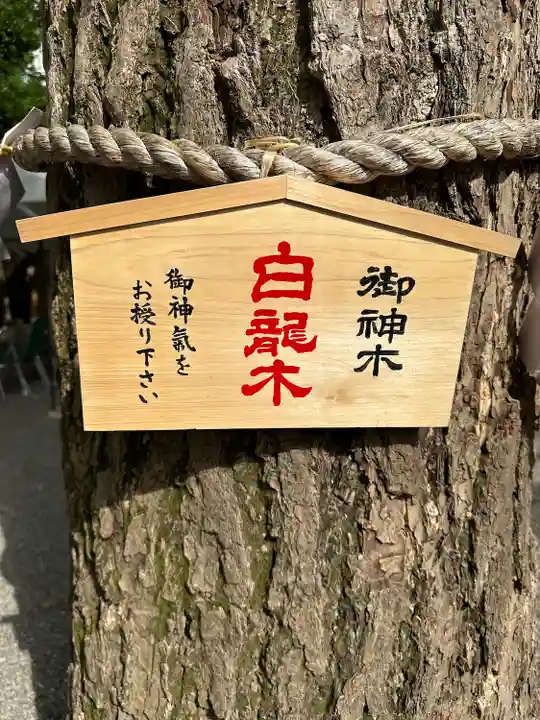 御神木
白龍木
御神氣を
お授り下さい